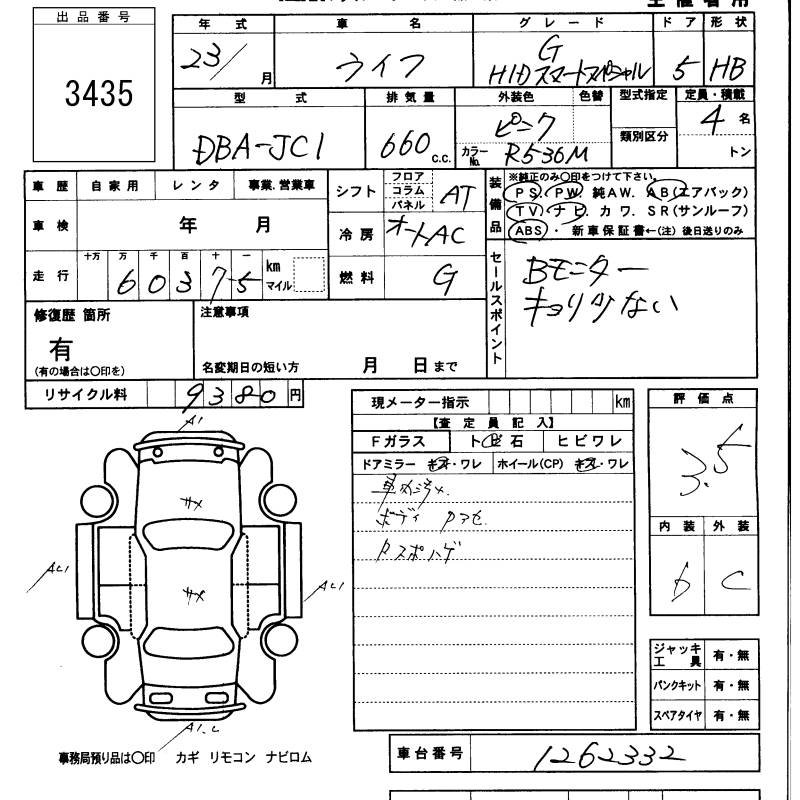 出品番号
3435
年式 車名 グレード ドア 形状
23/ 月 ライフ G HIDスマートスペシャル 5 HB
型式 排気量 外装色 色替 型式指定 定員・積載
DBA-JC1 660 c.c. ピンク 4 名
カラーNo. R536M 類別区分 トン
車歴 自家用 レンタ 事業.営業車
シフト フロア コラム パネル AT
装備品 ※純正のみ〇印をつけて下さい。
PS. PW 純AW. AB(エアバック)
TV. ナビ. カワ. SR(サンルーフ)
ABS ・ 新車保証書←(注) 後日送りのみ
車検 年 月
冷房 オートAC
走行 十万 万 千 百 十 一 km マイル
6 0 3 7 5
燃料 G
セールスポイント
Bモニター
キョリ少ない
修復歴 箇所
有
(有の場合は〇印を)
注意事項
名変期日の短い方 月 日まで
リサイクル料 9380 円
現メーター指示 km
【査定員記入】
Fガラス ト ビ 石 ヒビワレ
ドアミラー キズ・ワレ ホイール(CP) キズ・ワレ
車内汚れ
ボディ
ハゲ
評価点
3.5
内装 外装
b C
A1
サメ
サメ
AL1
AL1
A1.L
ジャッキ 工具 有・無
パンクキット 有・無
スペアタイヤ 有・無
事務局預り品は〇印 カギ リモコン ナビロム
車台番号 1262332